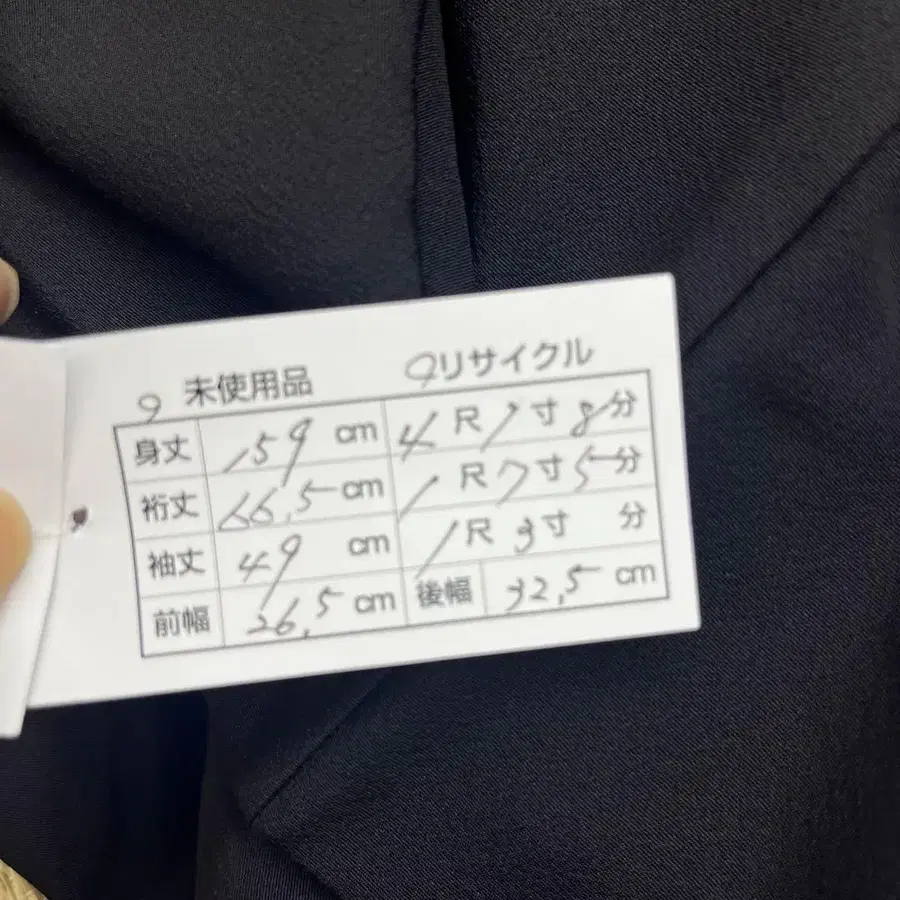 未使用品 リサイクル
身丈 159 cm 4尺1寸8分
裄丈 66.5 cm 1尺7寸5分
袖丈 49 cm 1尺3寸 分
前幅 26.5 cm 後幅 32.5 cm